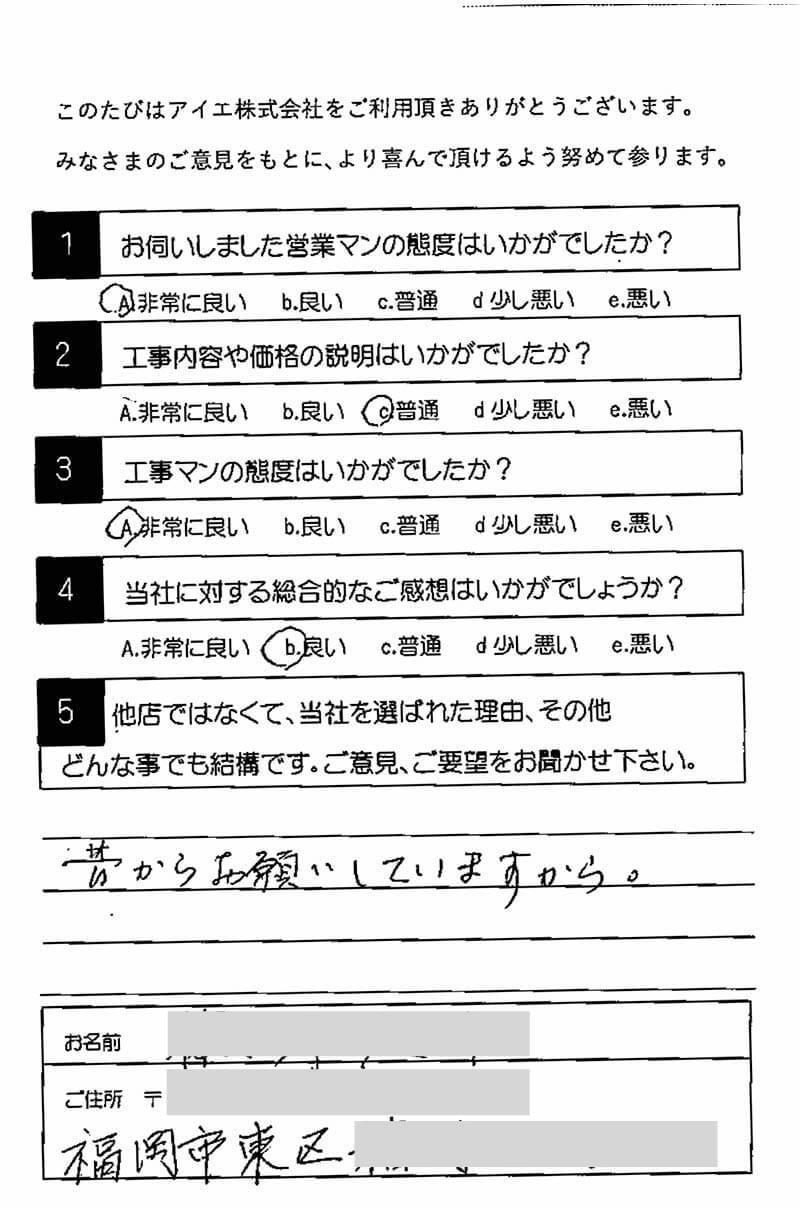 このたびはアイエ株式会社をご利用頂きありがとうございます。
みなさまのご意見をもとに、より喜んで頂けるよう努めて参ります。
1 お伺いしました営業マンの態度はいかがでしたか？
A.非常に良い b.良い c.普通 d 少し悪い e.悪い
2 工事内容や価格の説明はいかがでしたか？
A.非常に良い b.良い c.普通 d 少し悪い e.悪い
3 工事マンの態度はいかがでしたか？
A.非常に良い b.良い c.普通 d 少し悪い e.悪い
4 当社に対する総合的なご感想はいかがでしょうか？
A.非常に良い b.良い c.普通 d 少し悪い e.悪い
5 他店ではなくて、当社を選ばれた理由、その他
どんな事でも結構です。ご意見、ご要望をお聞かせ下さい。
昔からお願いしていますから。
お名前
ご住所 〒
福岡市東区